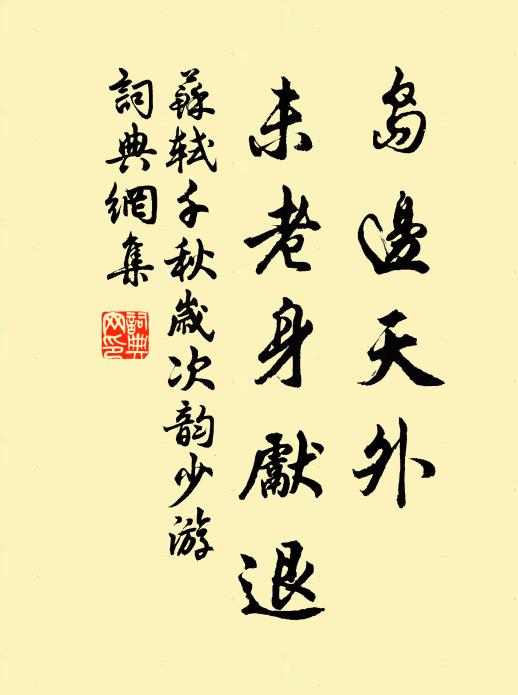 島邊天外
未老身獻退
蘇軾千秋歲次韵少游
詞典網集
詞典
网印